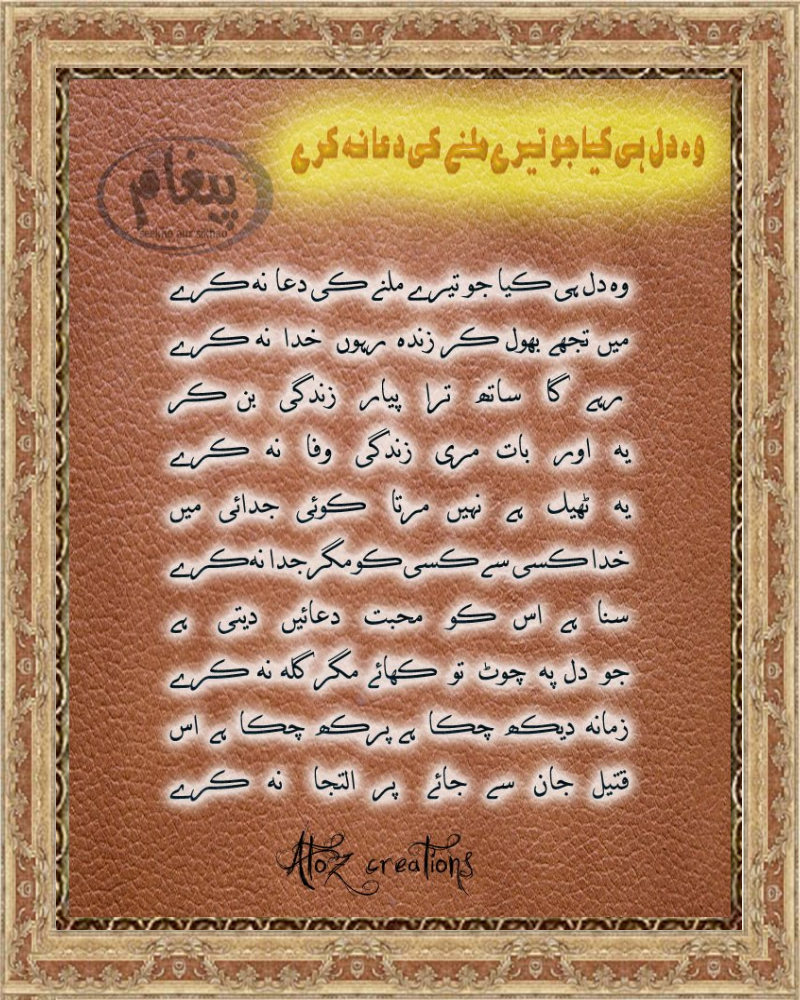 وہ دل ہی کیا جو تیرے ملنے کی دعا نہ کرے
پیغام
seekho aur sikhao
وہ دل ہی کیا جو تیرے ملنے کی دعا نہ کرے
میں تجھے بھول کر زندہ رہوں خدا نہ کرے
رہے گا ساتھ ترا پیار زندگی بن کر
یہ اور بات مری زندگی وفا نہ کرے
یہ ٹھیک ہے نہیں مرتا کوئی جدائی میں
خدا کسی سے کسی کو مگر جدا نہ کرے
سنا ہے اس کو محبت دعائیں دیتی ہے
جو دل پہ چوٹ تو کھائے مگر گلہ نہ کرے
زمانہ دیکھ چکا ہے پرکھ چکا ہے اس
قتیل جان سے جائے پر التجا نہ کرے
AtoZ creations